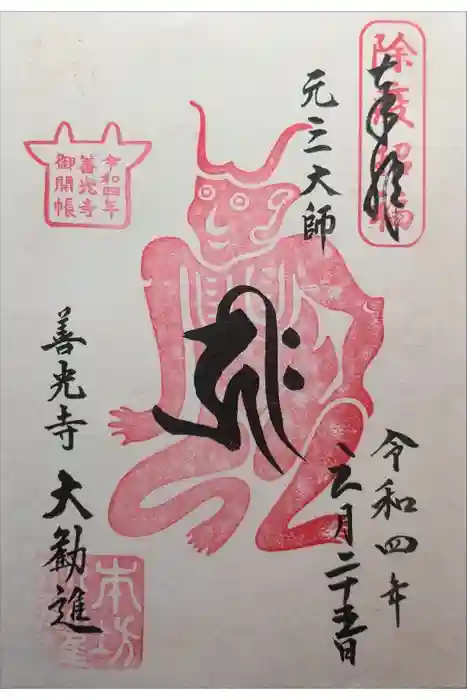 除疫招福
奉拝
元三大師
令和四年
六月二十五日
令和四年
善光寺
御開帳
善光寺 大勧進
本坊